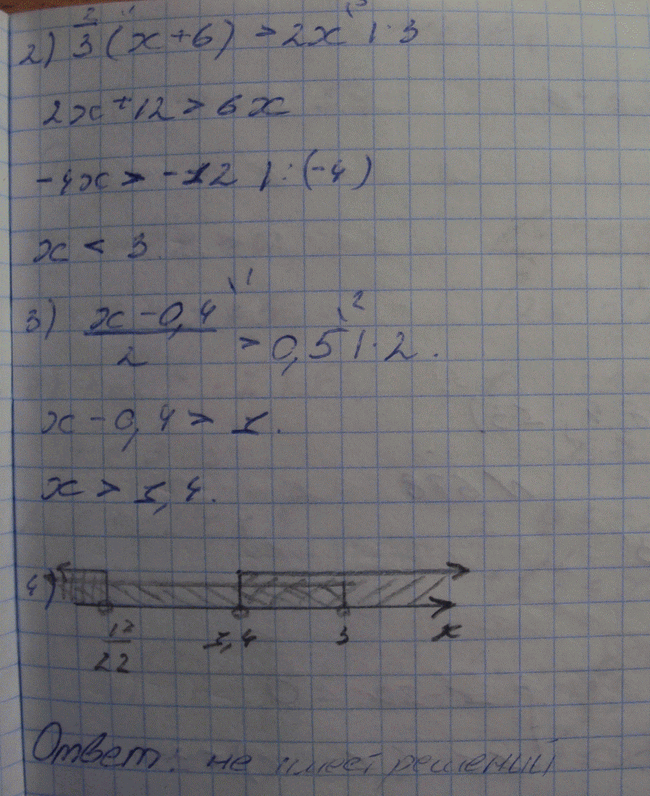 2) 2/3 (x+6) > 2x \3 | · 3
2x+12 > 6x
-4x > -12 | : (-4)
x < 3.
3) (x-0,4)/2 \1 > 0,5 \2 | · 2.
x - 0,4 > 1.
x > 1,4.
4)
17/22 1,4 3 x
Ответ: не имеет решений